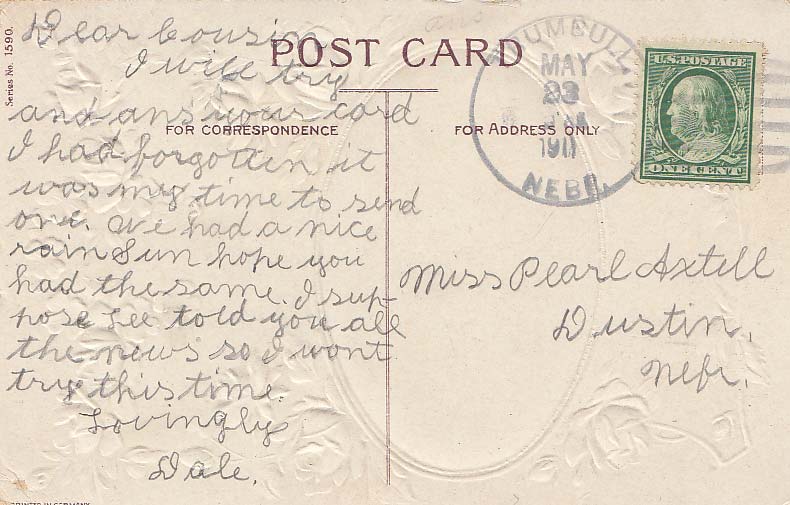 Series No. 1590.
ans
POST CARD
FOR CORRESPONDENCE
FOR ADDRESS ONLY
Dear Cousin
I will try
and ans your card
I had forgotten it
was my time to send
one. We had a nice
rain Sun hope you
had the same. I sup-
pose Lee told you all
the news so I wont
try this time.
Lovingly
Dale.
TRUMBULL
MAY
23
1911
NEBR.
U.S. POSTAGE
ONE CENT
Miss Pearl Axtell
Dustin,
Nebr.
PRINTED IN GERMANY